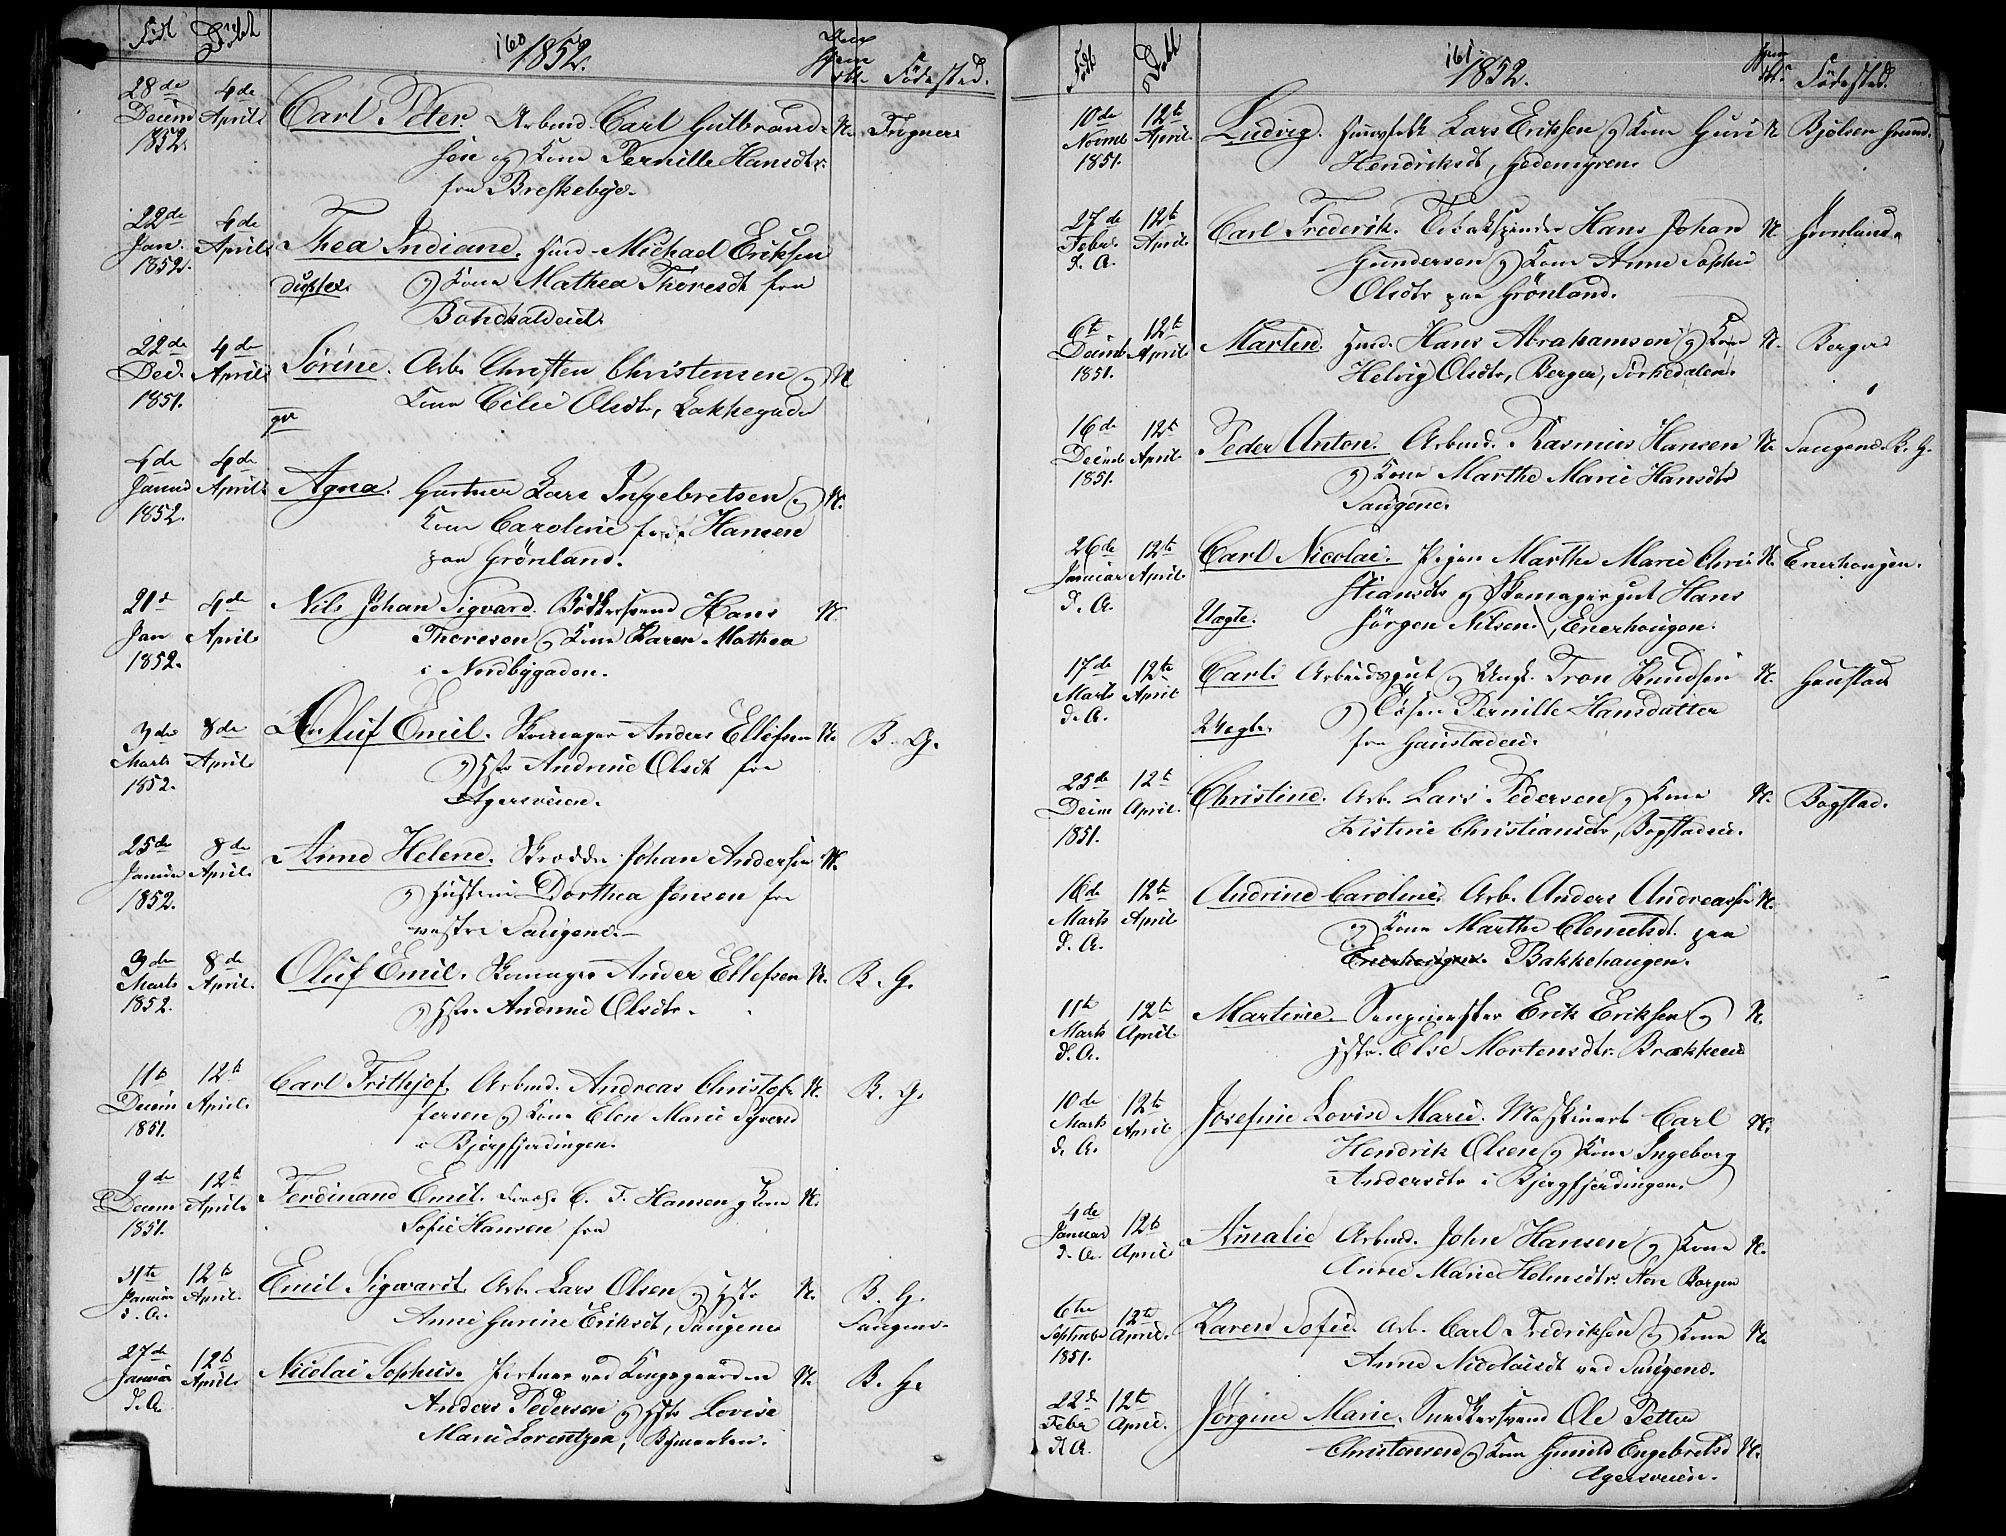 Fød Døbt 160 1852. Fødested.
28de 4de Carl Peter. Arbmd. Carl Gulbrand- N. Frogner
Decemb April sen og Kone Pernille Hansdtr.
1852. fra Breskebye.
22de 4de Thea Indiane. Huusd. Michael Eriksen
Jan. April og Kone Mathea Thoresdt fra
1852. duplex.
22de 4de Sørine. Arb. Christen Christensen og N
Dec. April Kone Cilie Olsdtr, Lakkegade
1851.
4de 4de Agna. Gartner Lars Ingebretsen og N.
Januar April Kone Caroline Hansen
1852. paa Grönland.
21d 4de Nils Johan Sigvard. Bödkersvend Hans N.
Jan April Thoresen og Kone Karen Mathea
1852. i Nordbygaden.
3de 8de Oluf Emil. Skomager Anders Ellefsen N. B. G.
Marts April og Hstr Andrine Olsdt fra
1852. Agersveien.
25de 8de Anne Helene. Skrædder Johan Andersen N.
Januar April og Hustru Dorthea Jensen fra
1852. vestre Saugene.
3de 8de Oluf Emil. Skomager Ander Ellefsen N. B. G.
Marts April og Hstr. Andrine Olsdtr.
1852.
11te 12te Carl Frithjof. Arbmd. Andreas Christof- N. B. G.
Decem April fersen og Kone Elen Marie Syversd
1851. i Bjergfjerdingen.
9de 12te Ferdinand Emil. C. F. Hansen og Kone N.
Decem April Sofie Hansen fra
1851.
12te Emil Sigwardt. Arb. Lars Olsen og Hstr N. B. G.
Januar April. Anne Gurine Eriksdt, Saugene Saugene.
d. A.
27de 12te Nicolai Sophus. Portner ved Kongsgaarden N. B. G.
Januar April Anders Pedersen og Hstr Lovise
d. A. Marie Lorentzen, Bymarken.
Født Døbt 161 1852. Fødested.
10de 12te Ludvig. Huusfolk Lars Eriksen og Kone Guri N Bjölsen Grund.
Novmb April Hendriksdt,
1851.
27de 12te Carl Frederik. Tobakspinder Hans Johan N. Grönland
Febr. April. Gundersen og Kone Anne Sophie
d. A. Olsdtr paa Grönland.
6te 12te Martin. Huusd. Hans Abrahamsen og Kone N. Berger
Decemb April Helvig Olsdtr, Berger, Sörkedalen.
1851.
16de 12te Peder Anton. Arbmd. Rasmus Hansen N. Saugene. B. G.
Decmb April og Kone Marthe Marie Hansdtr
1851. Saugene.
26de 12te Carl Nicolai. Pigen Marthe Marie Chri- N. Enerhaugen.
Januar April. stiansdtr og Skomagergut Hans
d. A. Uægte. Jörgen Nilsen, Enerhougen.
17de 12te Carl. Arbeidsgut og Ungk. Tron Knudsen N. Gaustad
Marts April og Tösen Pernille Hansdatter
d. A. Uægte. fra Gaustadeie.
25de 12te Christine. Arb. Lars Pedersen og Kone N. Bogstad.
Decem April. Kistine Christiansdtr, Bogstadeie.
1851.
16de 12te Andrine Caroline. Arb. Anders Andreassen N.
Marts April og Kone Marthe Clemetsdt. paa
d. A. Enerhaugen. Bakkehaugen.
11te 12te Martine. Saugmester Erik Eriksen og N.
Marts April. Hstr. Else Mortensdtr. Brækken
d. A.
10de 12te Josefine Lovise Marie. Maskinarb Carl N.
Marts April Hendrik Olsen og Kone Ingeborg
d. A. Andersdtr i Bjergfjerdingen.
4de 12te Amalie Arbmd. John Hansen og Kone N.
Januar April Anne Marie Holmsdtr. Store Borgen
d. A.
6te 12te Karen Sofie. Arb. Carl Fredriksen og Kone N.
Septembr April. Anne Nicolaisdt ved Saugene.
1851.
22d 12te Jörgine Marie. Snedkersvend Ole Petter
Febr April. Christensen og Kone Gunild Engebretsd N.
d. A. Agersveien.